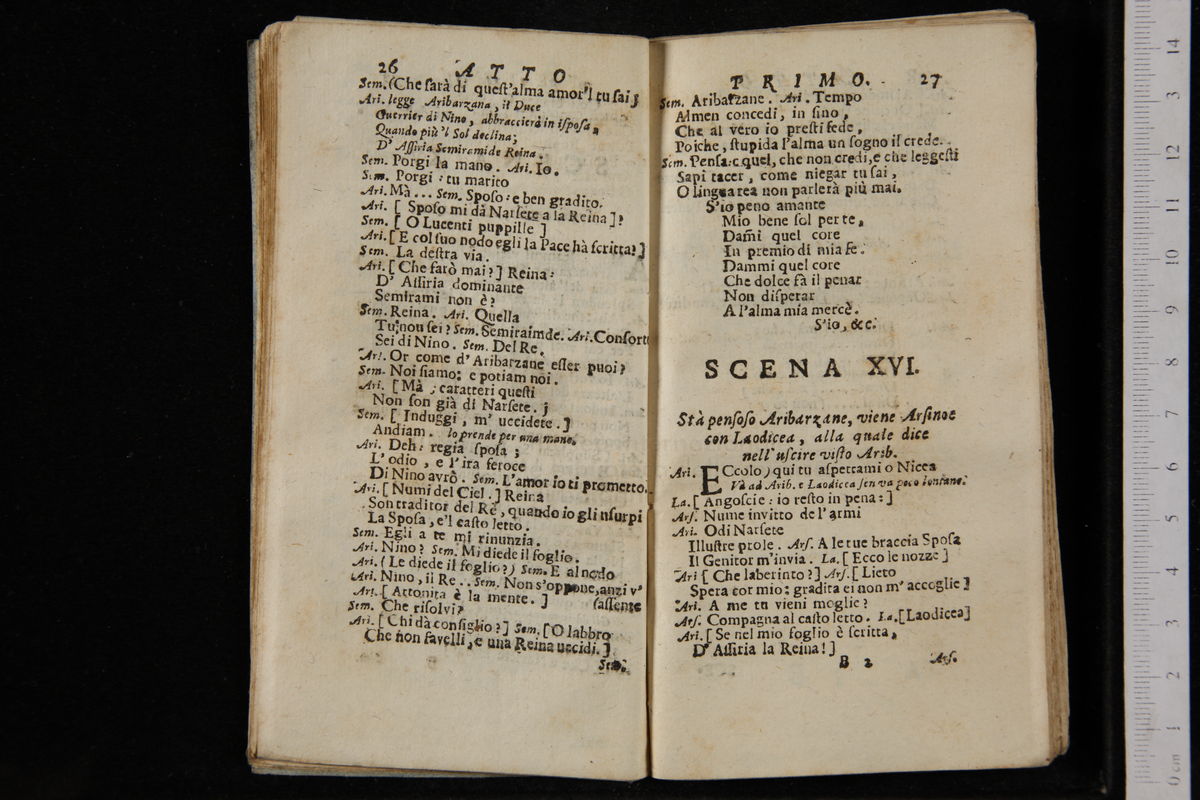 26 ATTO
Sem. (Che sarà di quest'alma amor'l tu sai;
Ari. legge Aribarzana, il Duce
Guerrier di Nino, abbraccierà in isposa,
Quando più 'l Sol declina;
D' Assiria Semiramide Reina.
Sem. Porgi la mano. Ari. Io.
Sem. Porgi: tu marito
Ari. Mà ... Sem. Sposo: e ben gradito.
Ari. [ Sposo mi dà Narsete a la Reina]?
Sem. [ O Lucenti puppille ]
Ari. [ E col suo nodo egli la Pace hà scritta?]
Sem. La destra via.
Ari. [ Che farò mai?] Reina:
D' Assiria dominante
Semirami non è?
Sem. Reina. Ari. Quella
Tu non sei? Sem. Semiraimde. Ari. Consort
Sei di Nino. Sem. Del Re.
Ari. Or come d'Aribarzane esser puoi?
Sem. Noi siamo: e potiam noi.
Ari. [ Mà ; caratteri questi
Non son già di Narsete. ]
Sem. [ Induggi, m' uccidete.]
Andiam. lo prende per una mano.
Ari. Deh: regia sposa;
L'odio, e l'ira feroce
Di Nino avrò. Sem. L'amor io ti prometto.
Ari. [ Numi del Ciel.] Reina
Son traditor del Re, quando io gli usurpi
La Sposa, e'l casto letto.
Sem. Egli a te mi rinunzia.
Ari. Nino? Sem. Mi diede il foglio.
Ari. ( Le diede il foglio?) Sem. E al nodo
Ari. Nino, il Re.. Sem. Non s'oppone, anzi v'
Ari. [ Attonita è la mente. ] sassente
Sem. Che risolvi?
Ari. [ Chi dà consiglio?] Sem. [O labbro
Che non favelli, e una Reina uccidi.]
Sem.
PRIMO. 27
Sem. Aribarzane. Ari. Tempo
Almen concedi, in sino,
Che al vero io presti fede,
Poiche, stupida l'alma un sogno il crede.
Sem. Pensa: e quel, che non credi, e che leggesti
Sapi tacer, come niegar tu sai,
O lingua rea non parlerà più mai.
S'io peno amante
Mio bene sol per te,
Dam̃i quel core
In premio di mia fe.
Dammi quel core
Che dolce fà il penar
Non disperar
A l'alma mia mercè.
S'io, &c.
SCENA XVI.
Stà pensoso Aribarzane, viene Arsinoe
con Laodicea, alla quale dice
nell' uscire visto Arib.
Ari. ECcolo) qui tu aspettami o Nicea
Và ad Arib. e Laodicea sen va poco lontano.
La. [ Angoscie: io resto in pena: ]
Ars. Nume invitto de l'armi
Ari. Odi Narsete
Illustre prole. Ars. A le tue braccia Sposa
Il Genitor m'invia. La. [ Ecco le nozze ]
Ari [ Che laberinto?] Ars. [ Lieto
Spera cor mio: gradita ei non m' accoglie ]
Ari. A me tu vieni moglie?
Ars. Compagna al casto letto. La. [Laodicea]
Ari. [ Se nel mio foglio è scritta,
D' Assiria la Reina!]
B 2 Ars.